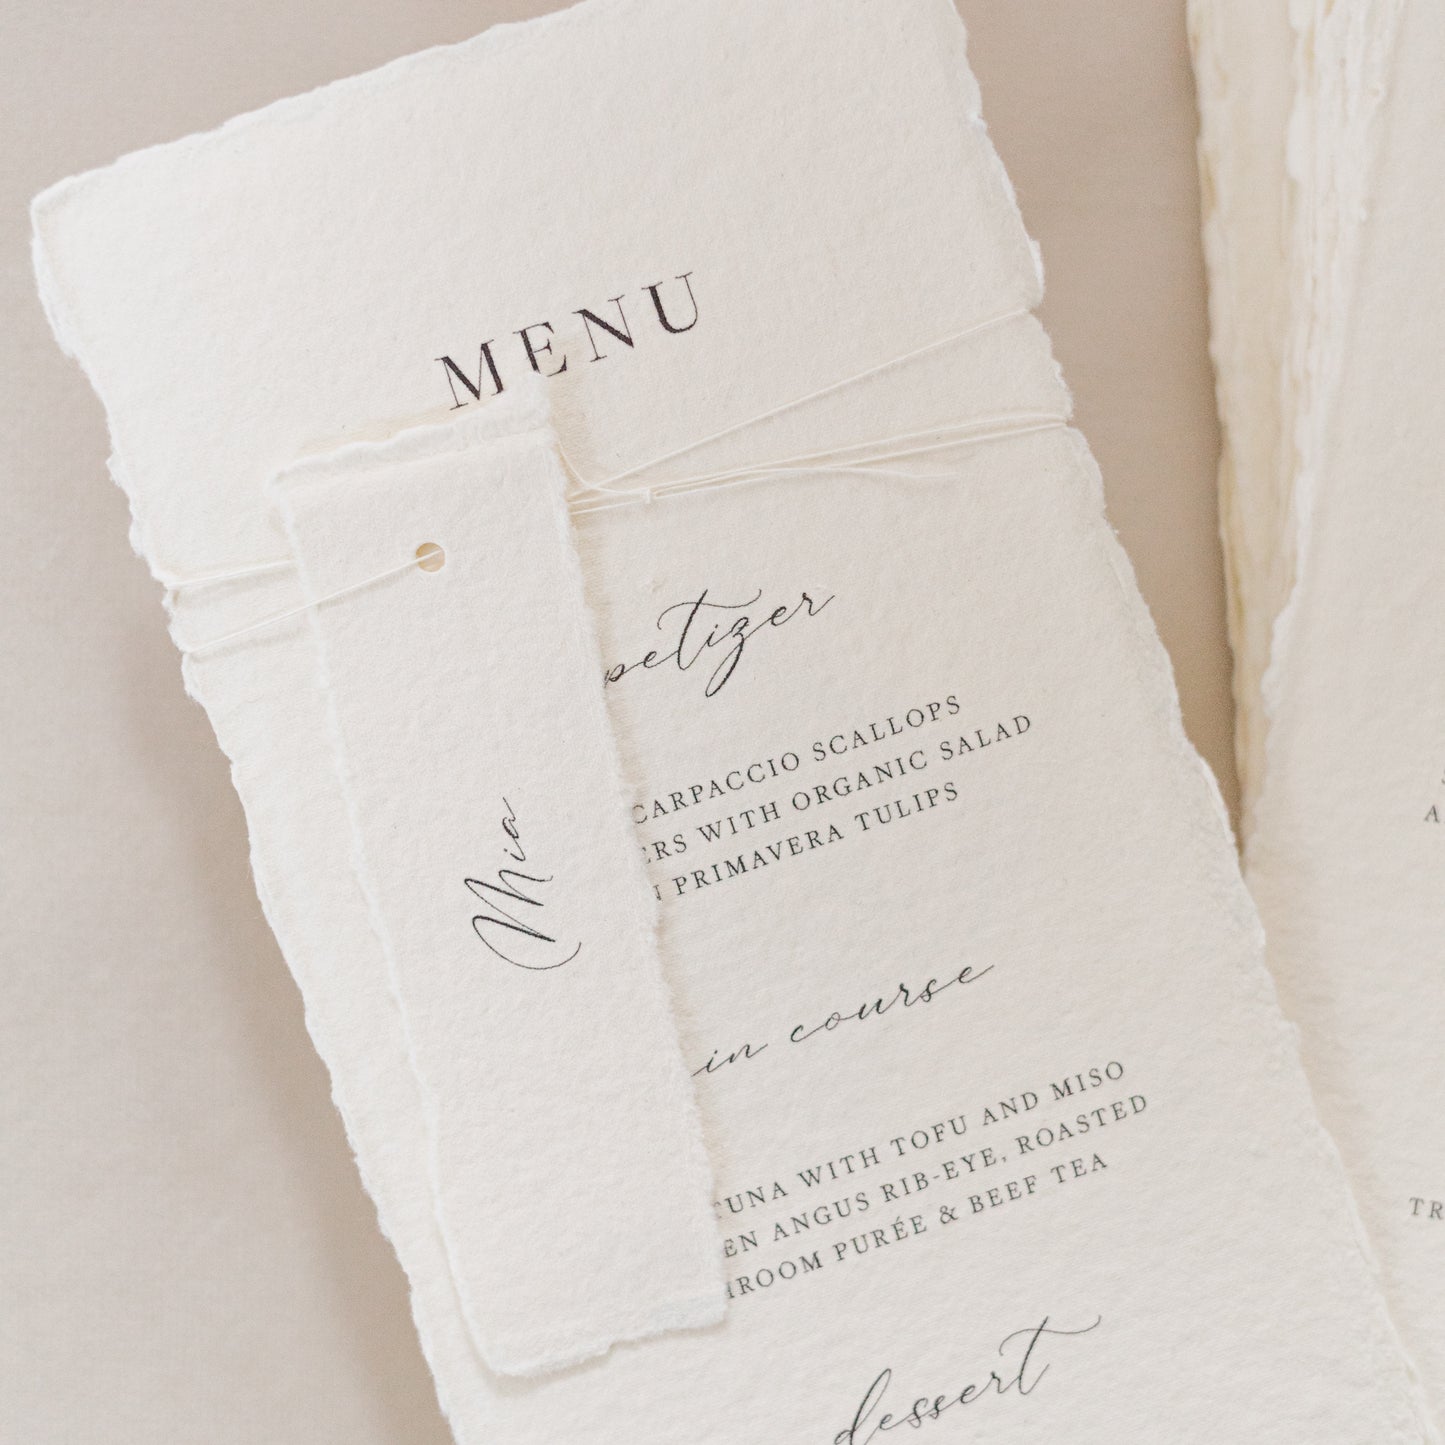 MENU
petizer
CARPACCIO SCALLOPS
ERS WITH ORGANIC SALAD
N PRIMAVERA TULIPS
Mia
in course
TUNA WITH TOFU AND MISO
EN ANGUS RIB-EYE, ROASTED
HROOM PURÉE & BEEF TEA
dessert
A
TR